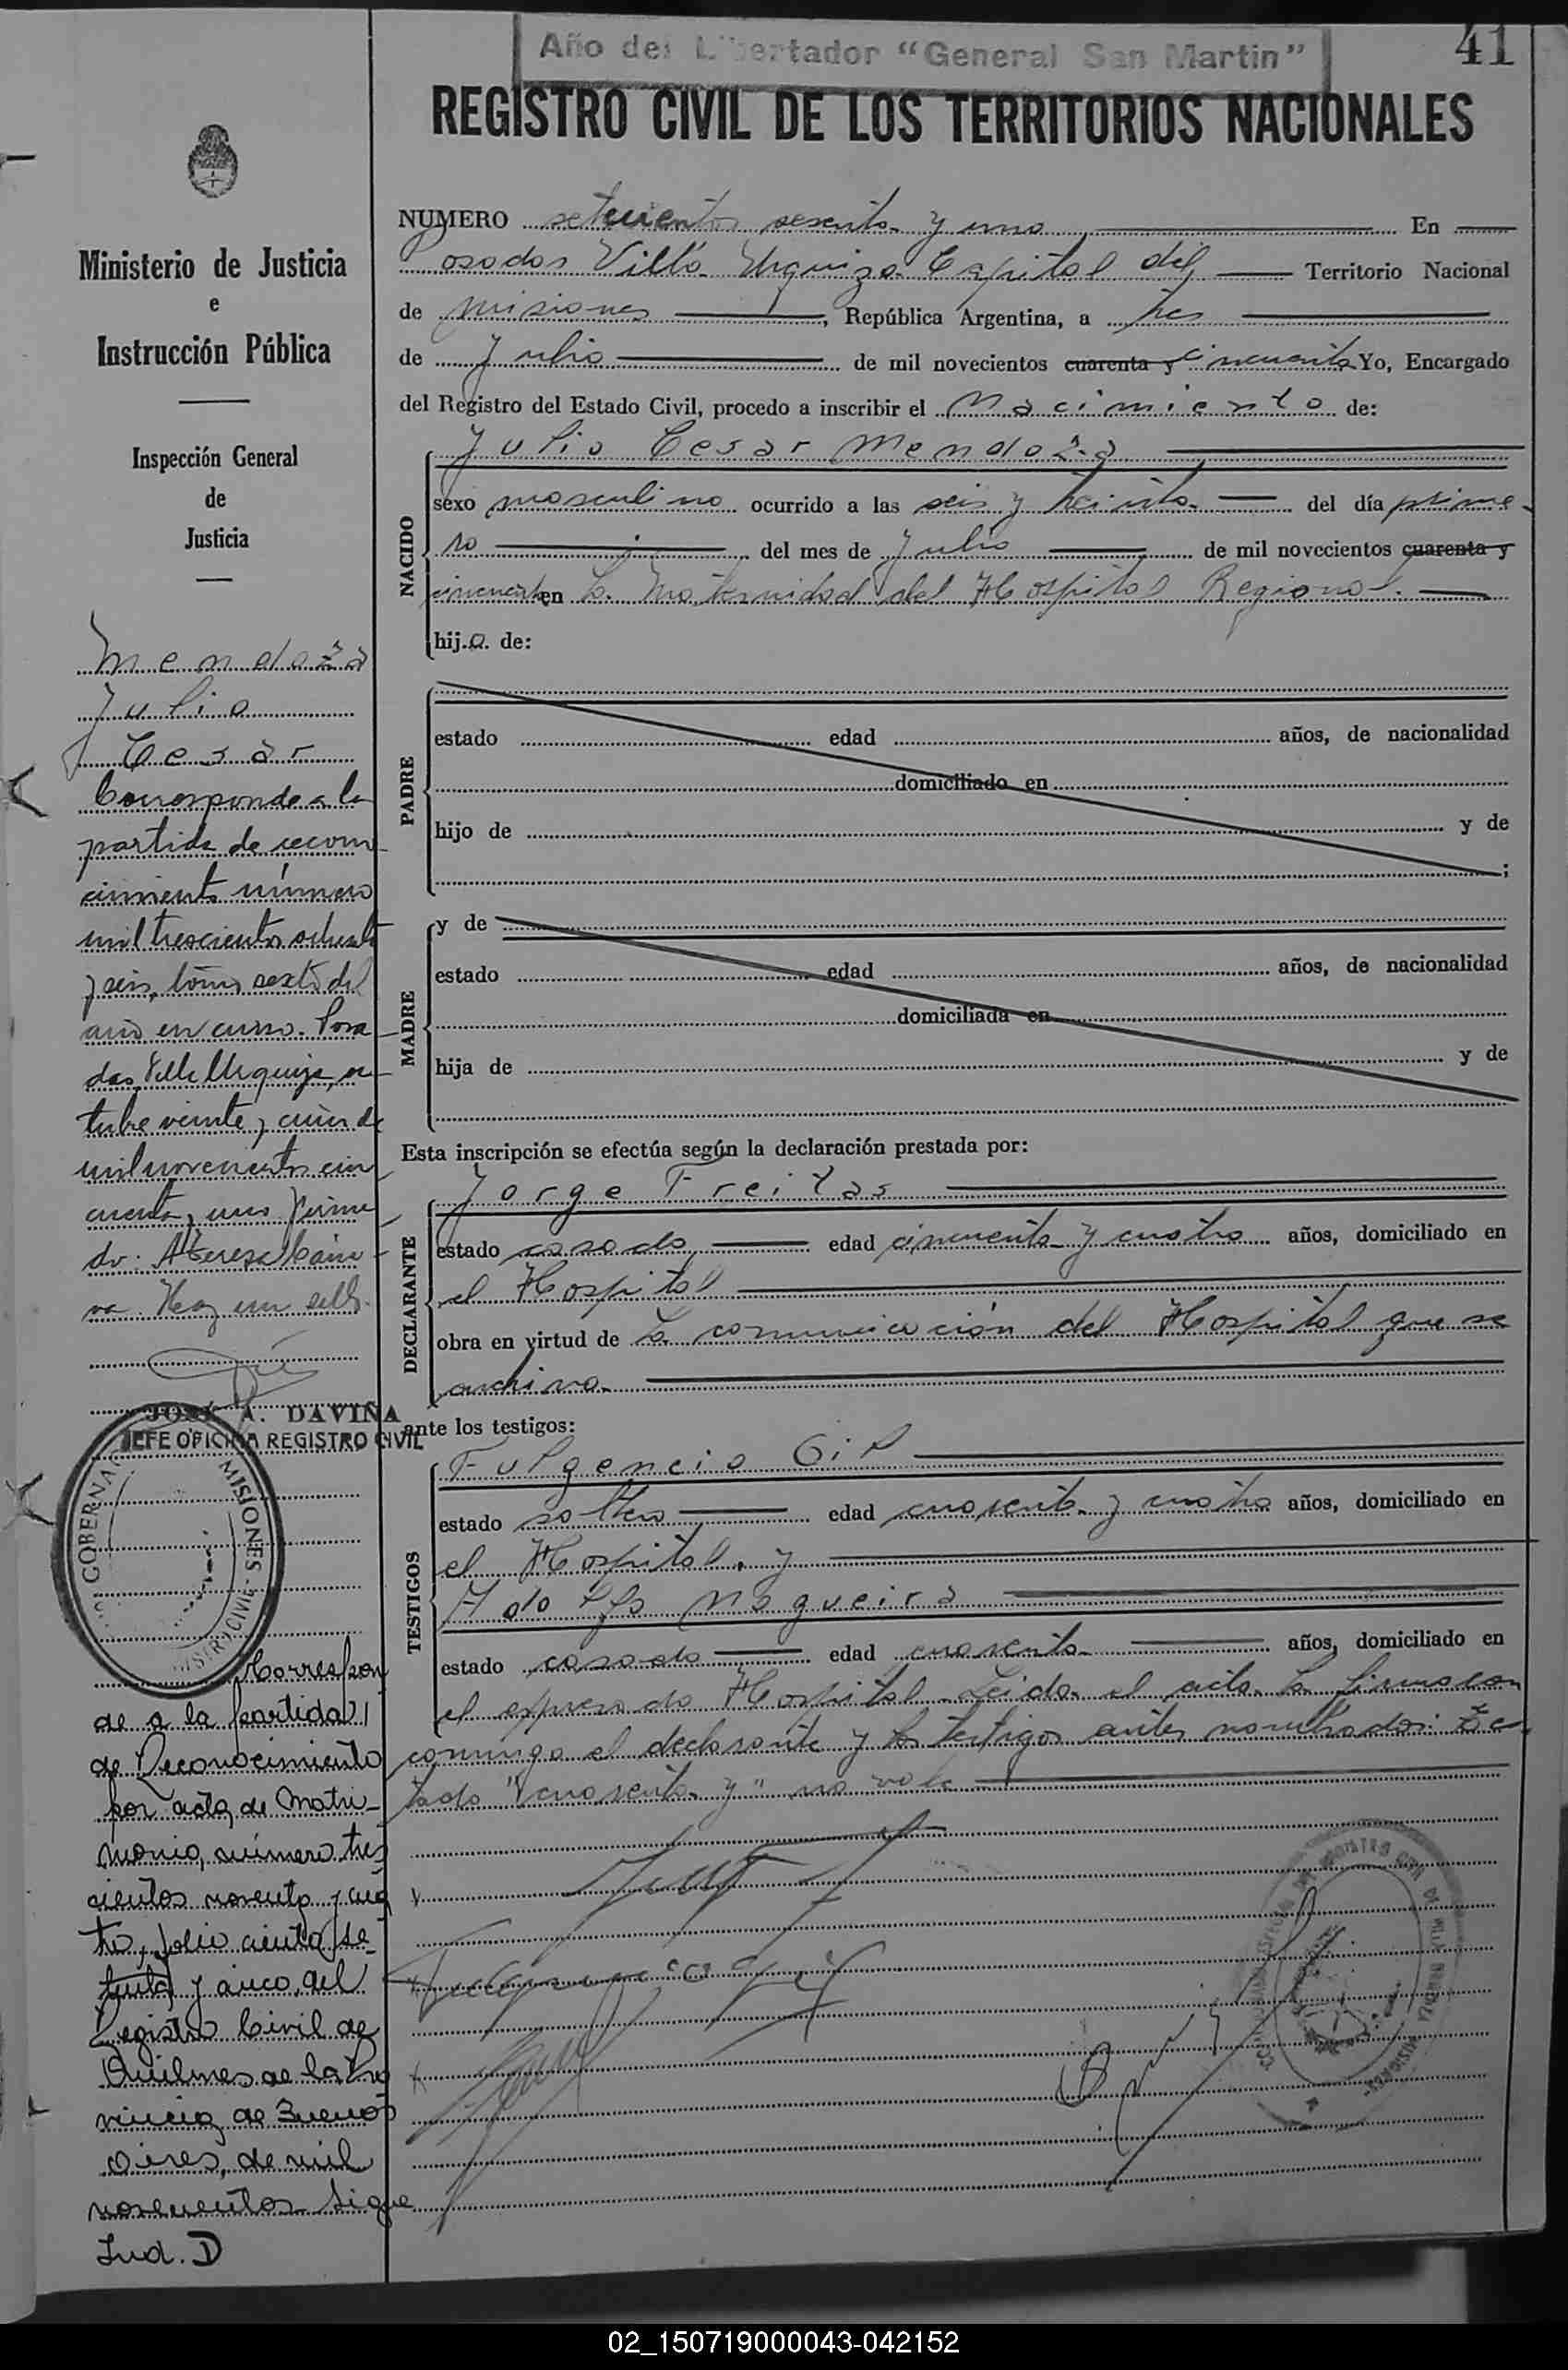 Año del Libertador "General San Martin"
41
REGISTRO CIVIL DE LOS TERRITORIOS NACIONALES
Ministerio de Justicia
e
Instrucción Pública
Inspección General
de
Justicia
Mendoza
Julio
Cesar
Corresponde a la
partida de recono-
cimiento número
mil trescientos ochenta
y seis, tomo sexto del
año en curso. Posa-
das, Villa Urquiza, oc-
tubre veinte y cinco de
mil novecientos cin
cuenta y uno. Firma-
do:
Hay un sello.
JOSE A. DAVIÑA
JEFE OFICINA REGISTRO CIVIL
MISIONES
Correspon
de a la partida
de Reconocimiento
por acta de Matri-
monio, número tres
cientos noventa y cua
tro, folio ciento se-
tenta y cinco, del
Registro Civil de
Quilmes de la Pro
vincia de Buenos
Aires, de mil
novecientos Sigue
Ind. D
NUMERO setecientos sesenta y uno En
Posadas Villa Urquiza Capital del Territorio Nacional
de Misiones, República Argentina, a tres
de Julio de mil novecientos cuarenta y cincuenta Yo, Encargado
del Registro del Estado Civil, procedo a inscribir el Nacimiento de:
NACIDO
Julio Cesar Mendoza
sexo masculino ocurrido a las seis y treinta del día prime-
ro del mes de Julio de mil novecientos cuarenta y
cincuenta en La Maternidad del Hospital Regional.
hijo de:
PADRE
estado edad años, de nacionalidad
domiciliado en
hijo de y de
;
MADRE
y de
estado edad años, de nacionalidad
domiciliada en
hija de y de
Esta inscripción se efectúa según la declaración prestada por:
DECLARANTE
Jorge Freitas
estado casado edad cincuenta y cuatro años, domiciliado en
el Hospital
obra en virtud de la comunicación del Hospital que se
archiva.
ante los testigos:
TESTIGOS
Fulgencio Gil
estado soltero edad cuarenta y cuatro años, domiciliado en
el Hospital, y
Adolfo Nogueira
estado casado edad cuarenta años, domiciliado en
el expresado Hospital. Leida el acta la firmaron
conmigo el declarante y los testigos antes nombrados: Tes-
tado "cuarenta y" no vale
02_150719000043-042152